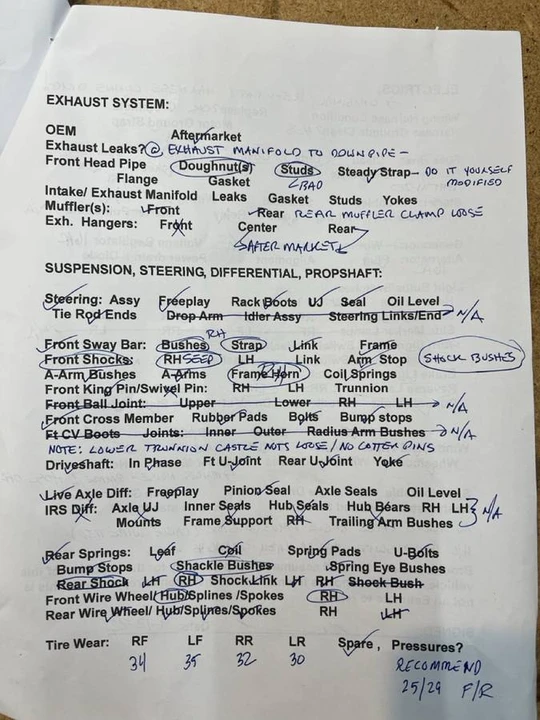 EXHAUST SYSTEM:
OEM Aftermarket
Exhaust Leaks? @ EXHAUST MANIFOLD TO DOWNPIPE -
Front Head Pipe Doughnut(s) Studs Steady Strap - DO IT YOURSELF
Flange Gasket BAD MODIFIED
Intake/ Exhaust Manifold Leaks Gasket Studs Yokes
Muffler(s): Front Rear REAR MUFFLER CLAMP LOOSE
Exh. Hangers: Front Center Rear
AFTER MARKET
SUSPENSION, STEERING, DIFFERENTIAL, PROPSHAFT:
Steering: Assy Freeplay Rack Boots UJ Seal Oil Level
Tie Rod Ends Drop Arm Idler Assy Steering Links/End N/A
RH
Front Sway Bar: Bushes Strap Link Frame
Front Shocks: RH SEEP LH Link Arm Stop SHOCK BUSHES
A-Arm Bushes A-Arms Frame Horn Coil Springs
Front King Pin/Swivel Pin: RH LH Trunnion
Front Ball Joint: Upper Lower RH LH N/A
Front Cross Member Rubber Pads Bolts Bump stops
Ft CV Boots Joints: Inner Outer Radius Arm Bushes N/A
NOTE: LOWER TRUNNION CASTLE NUTS LOOSE / NO COTTER PINS
Driveshaft: In Phase Ft U-Joint Rear U-Joint Yoke
Live Axle Diff: Freeplay Pinion Seal Axle Seals Oil Level
IRS Diff: Axle UJ Inner Seals Hub Seals Hub Bears RH LH N/A
Mounts Frame Support RH Trailing Arm Bushes
Rear Springs: Leaf Coil Spring Pads U-Bolts
Bump Stops Shackle Bushes Spring Eye Bushes
Rear Shock LH RH Shock Link LH RH Shock Bush
Front Wire Wheel/ Hub/Splines /Spokes RH LH
Rear Wire Wheel/ Hub/Splines/Spokes RH LH
Tire Wear: RF LF RR LR Spare , Pressures?
34 35 32 30 RECOMMEND
25/29 F/R